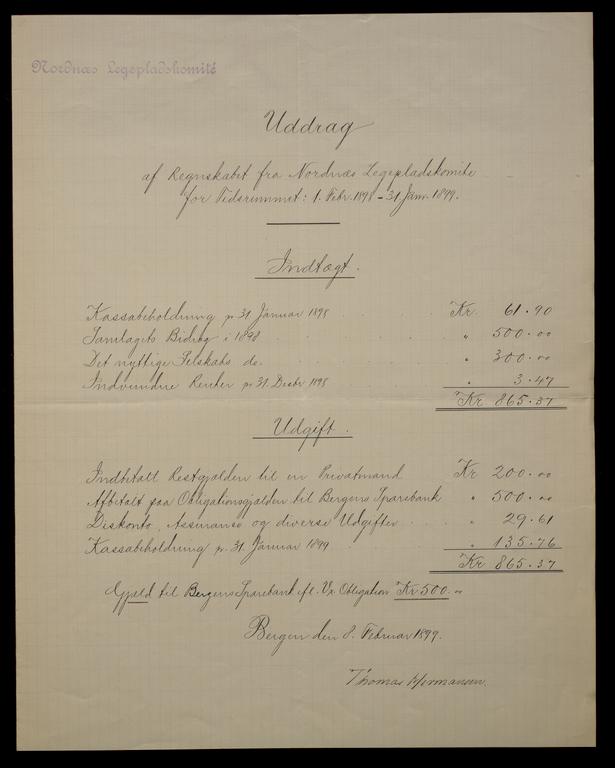 Nordnæs Legepladskomité
Uddrag
af Regnskabet fra Nordnæs Legepladskomite
for Tidsrummet: 1. Febr. 1898 – 31 Jan. 1899.
Indtægt.
Kassabeholdning pr 31 Januar 1898 Kr. 61.90
Samlagets Bidrag i 1898 " 500.00
Det nyttige Selskabs do. " 300.00
Indvundne Renter pr 31. Decbr 1898 " 3.47
Kr 865.37
Udgift.
Indbetalt Restgjælden til en Privatmand Kr 200.00
Afbetalt paa Obligationsgjælden til Bergens Sparebank " 500.00
Diskonto, Assuranse og diverse Udgifter " 29.61
Kassabeholdning pr. 31 Januar 1899 " 135.76
Kr 865.37
Gjæld til Bergens Sparebank ifl. Obligation Kr 500. "
Bergen den 8. Februar 1899.
Thomas Hermansen.